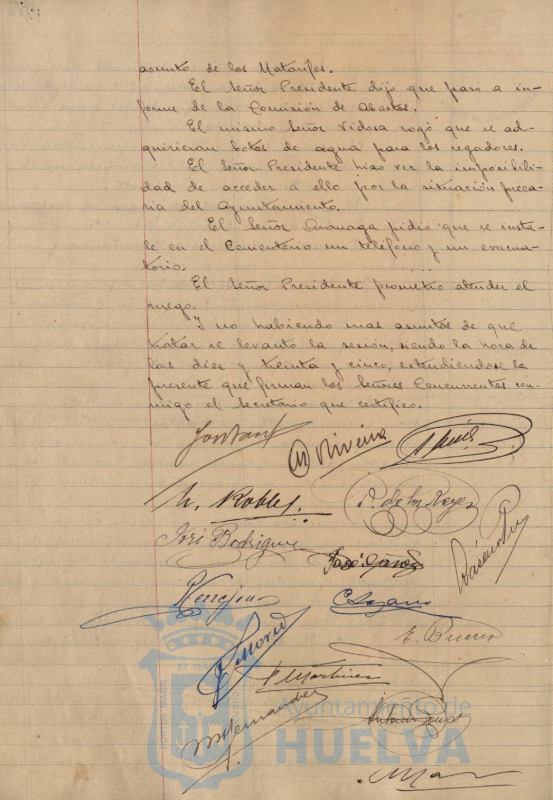 asunto de los Matarifes.
El Señor Presidente dijo que pase a in-
forme de la Comisión de Abastos.
El mismo Señor Vidosa rogó que se ad-
quirieran botas de agua para los regadores.
El Señor Presidente hizo ver la imposibili-
dad de acceder a ello por la situación preca-
ria del Ayuntamiento.
El Señor pidió que se insta-
le en el Cementerio un teléfono y un evacua-
torio.
El Señor Presidente prometió atender el
ruego.
Y no habiendo mas asuntos de que
tratar se levantó la sesión, siendo la hora de
las diez y treinta y cinco, extendiendose la
presente que firman los Señores Concurrentes con-
migo el Secretario que certifico.
Oliveira
Robles
P. de los Reyes
José Rodriguez
José
C. Lozano
E. Bueno
F. Martinez
M. Hernandez
Antonio
Ayuntamiento de
HUELVA